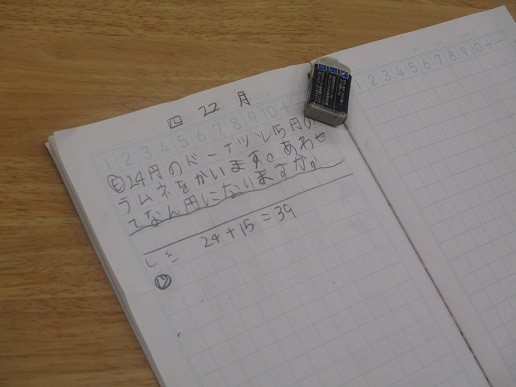 四 22 月
1 2 3 4 5 6 7 8 9 10 +
1 2 3 4 5 6 7 8 9 10 + −
も 24円のドーナツと15円の
ラムネをかいます。あわせ
てなん円になりますか。
しき 24+15=39